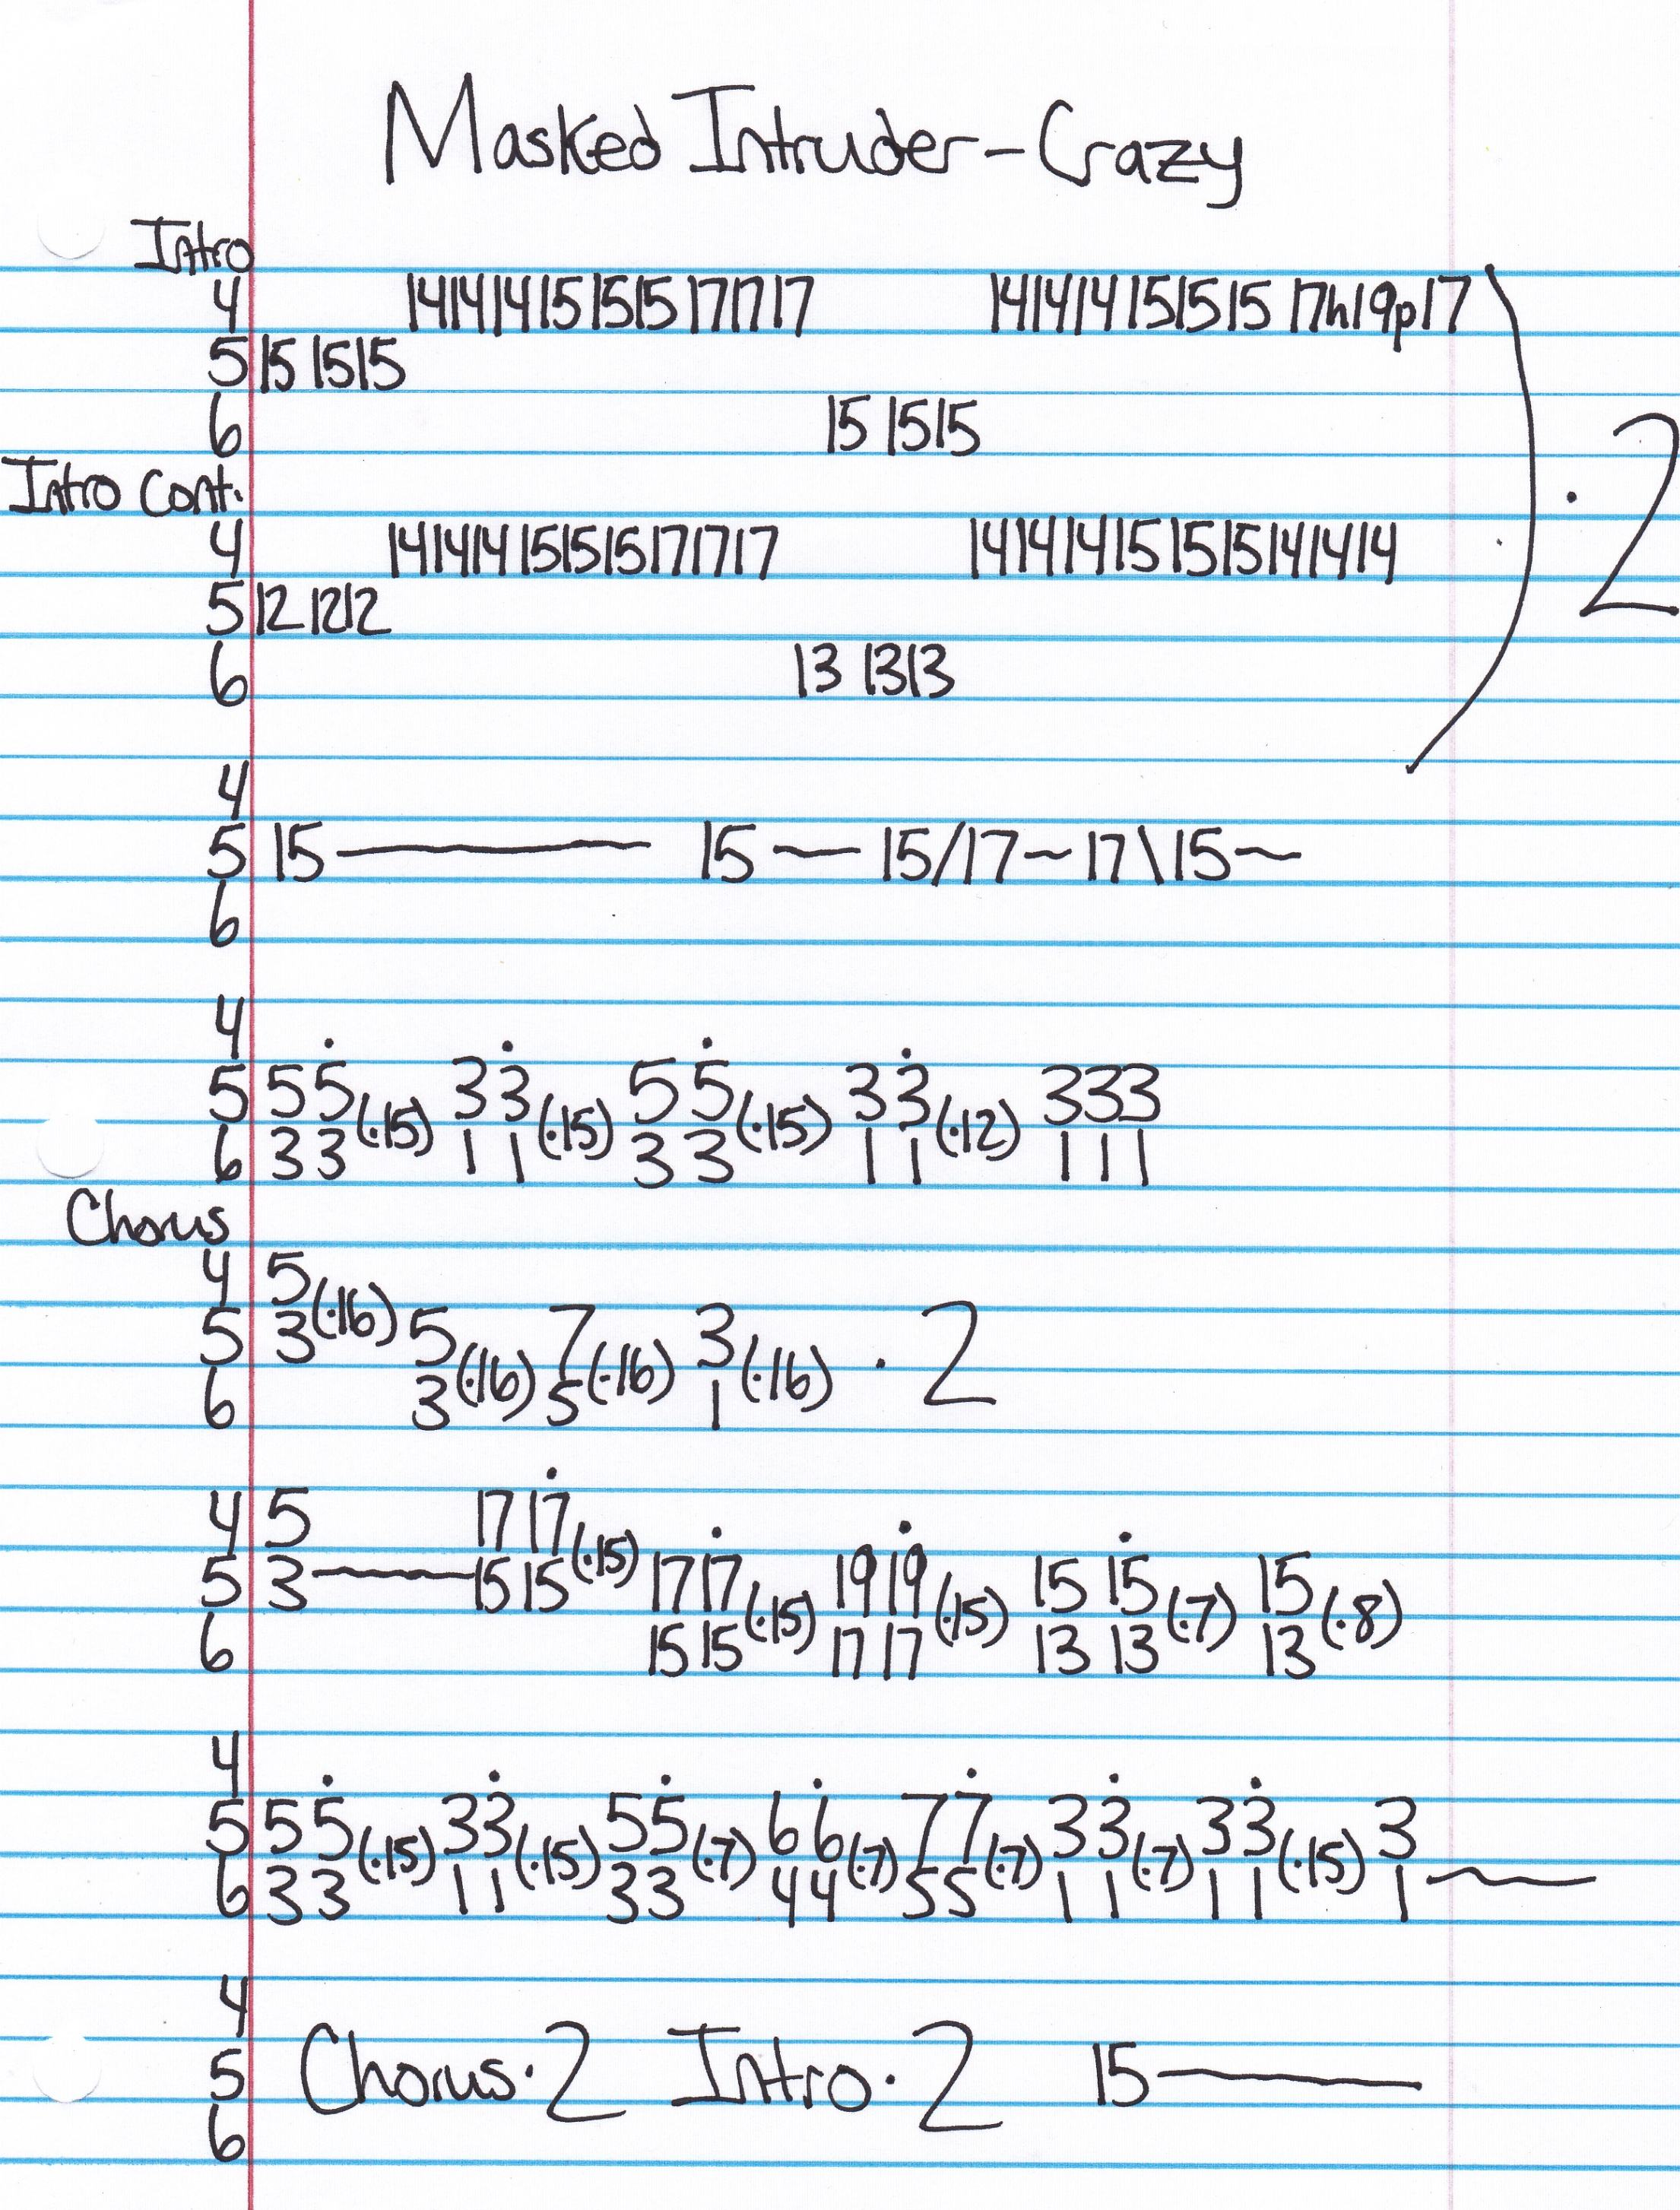 Masked Intruder-Crazy
Intro
4 141414151515171717 141414151515 17h19p17
5 15 1515
6 15 1515
) ·2
Intro Cont.
4 141414151515171717 141414151515141414
5 12 1212
6 13 1313
4
5 15 —— 15 ~ 15/17~17\15~
6
4
5 5 5 (·15) 3 3 (·15) 5 5 (·15) 3 3 (·12) 333
6 3 3 1 1 3 3 1 1 1 1 1
Chorus
4 5
5 3 (·16) 5 7 3 · 2
6 3 (·16) 5 (·16) 1 (·16)
4 5 17 17
5 3 —— 15 15 (·15) 17 17 19 19 15 15 15
6 15 15 (·15) 17 17 (·15) 13 13 (·7) 13 (·8)
4
5 5 5 3 3 5 5 6 6 7 7 3 3 3 3 3
6 3 3 (·15) 1 1 (·15) 3 3 (·7) 4 4 (·7) 5 5 (·7) 1 1 (·7) 1 1 (·15) 1 ~
4
5 Chorus·2 Intro·2 15 ——
6